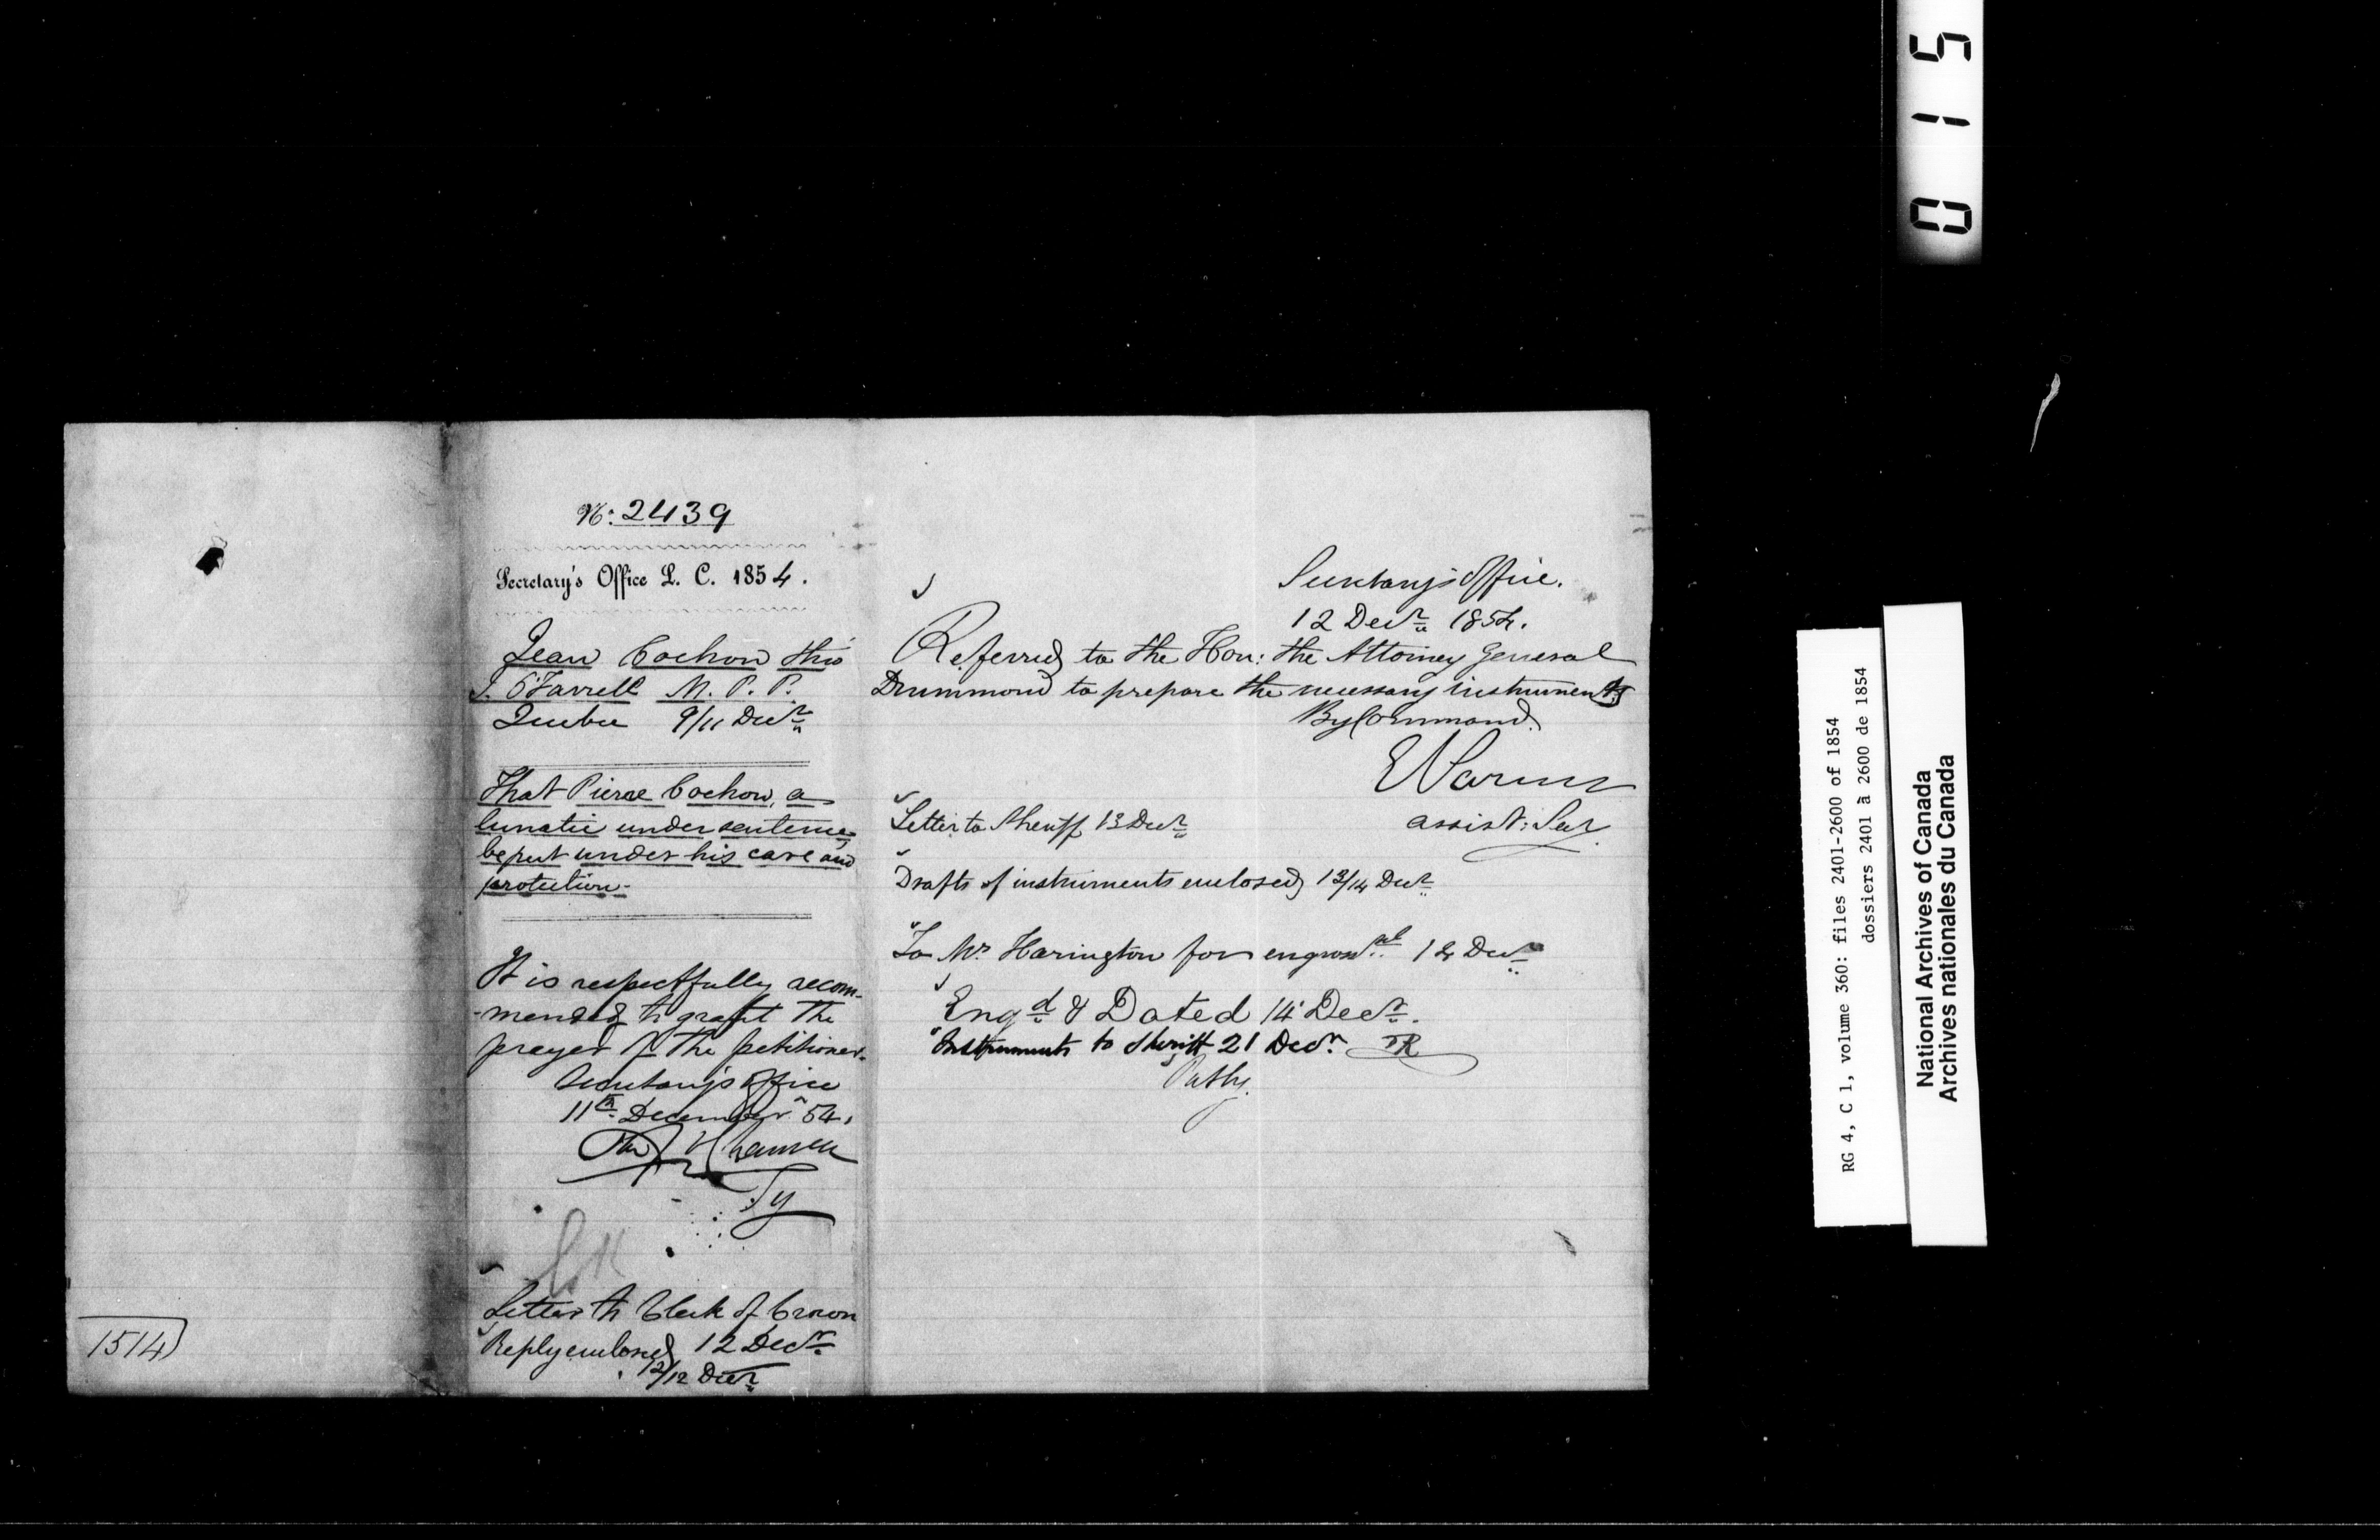 No. 2439
Secretary's Office L. C. 1854.
Jean Cochon thro'
J. O'Farrell M. P. P.
Quebec 9/11 Decr
That Pierre Cochon, a
lunatic under sentence,
be put under his care and
protection-
It is respectfully recom-
-mended to grant the
prayer of the petitioner.
Secretary's Office
11th December 54.
Chauveau
Sy
Letter to Clerk of Crown
12 Decr
Reply enclosed
12/12 Decr
1514
Secretary's Office.
12 Decr 1854.
Referred to the Hon: the Attorney General
Drummond to prepare the necessary instruments
By Command.
E Parent
assist: Secy.
Letter to Sheriff 13 Decr
Drafts of instruments enclosed 13/14 Decr
To Mr Harington for engrossal 14 Decr
Engd & Dated 14 Decr.
Instruments to Sheriff 21 Decr. TR
0 1 5
RG 4, C 1, volume 360: files 2401-2600 of 1854
dossiers 2401 à 2600 de 1854
National Archives of Canada
Archives nationales du Canada